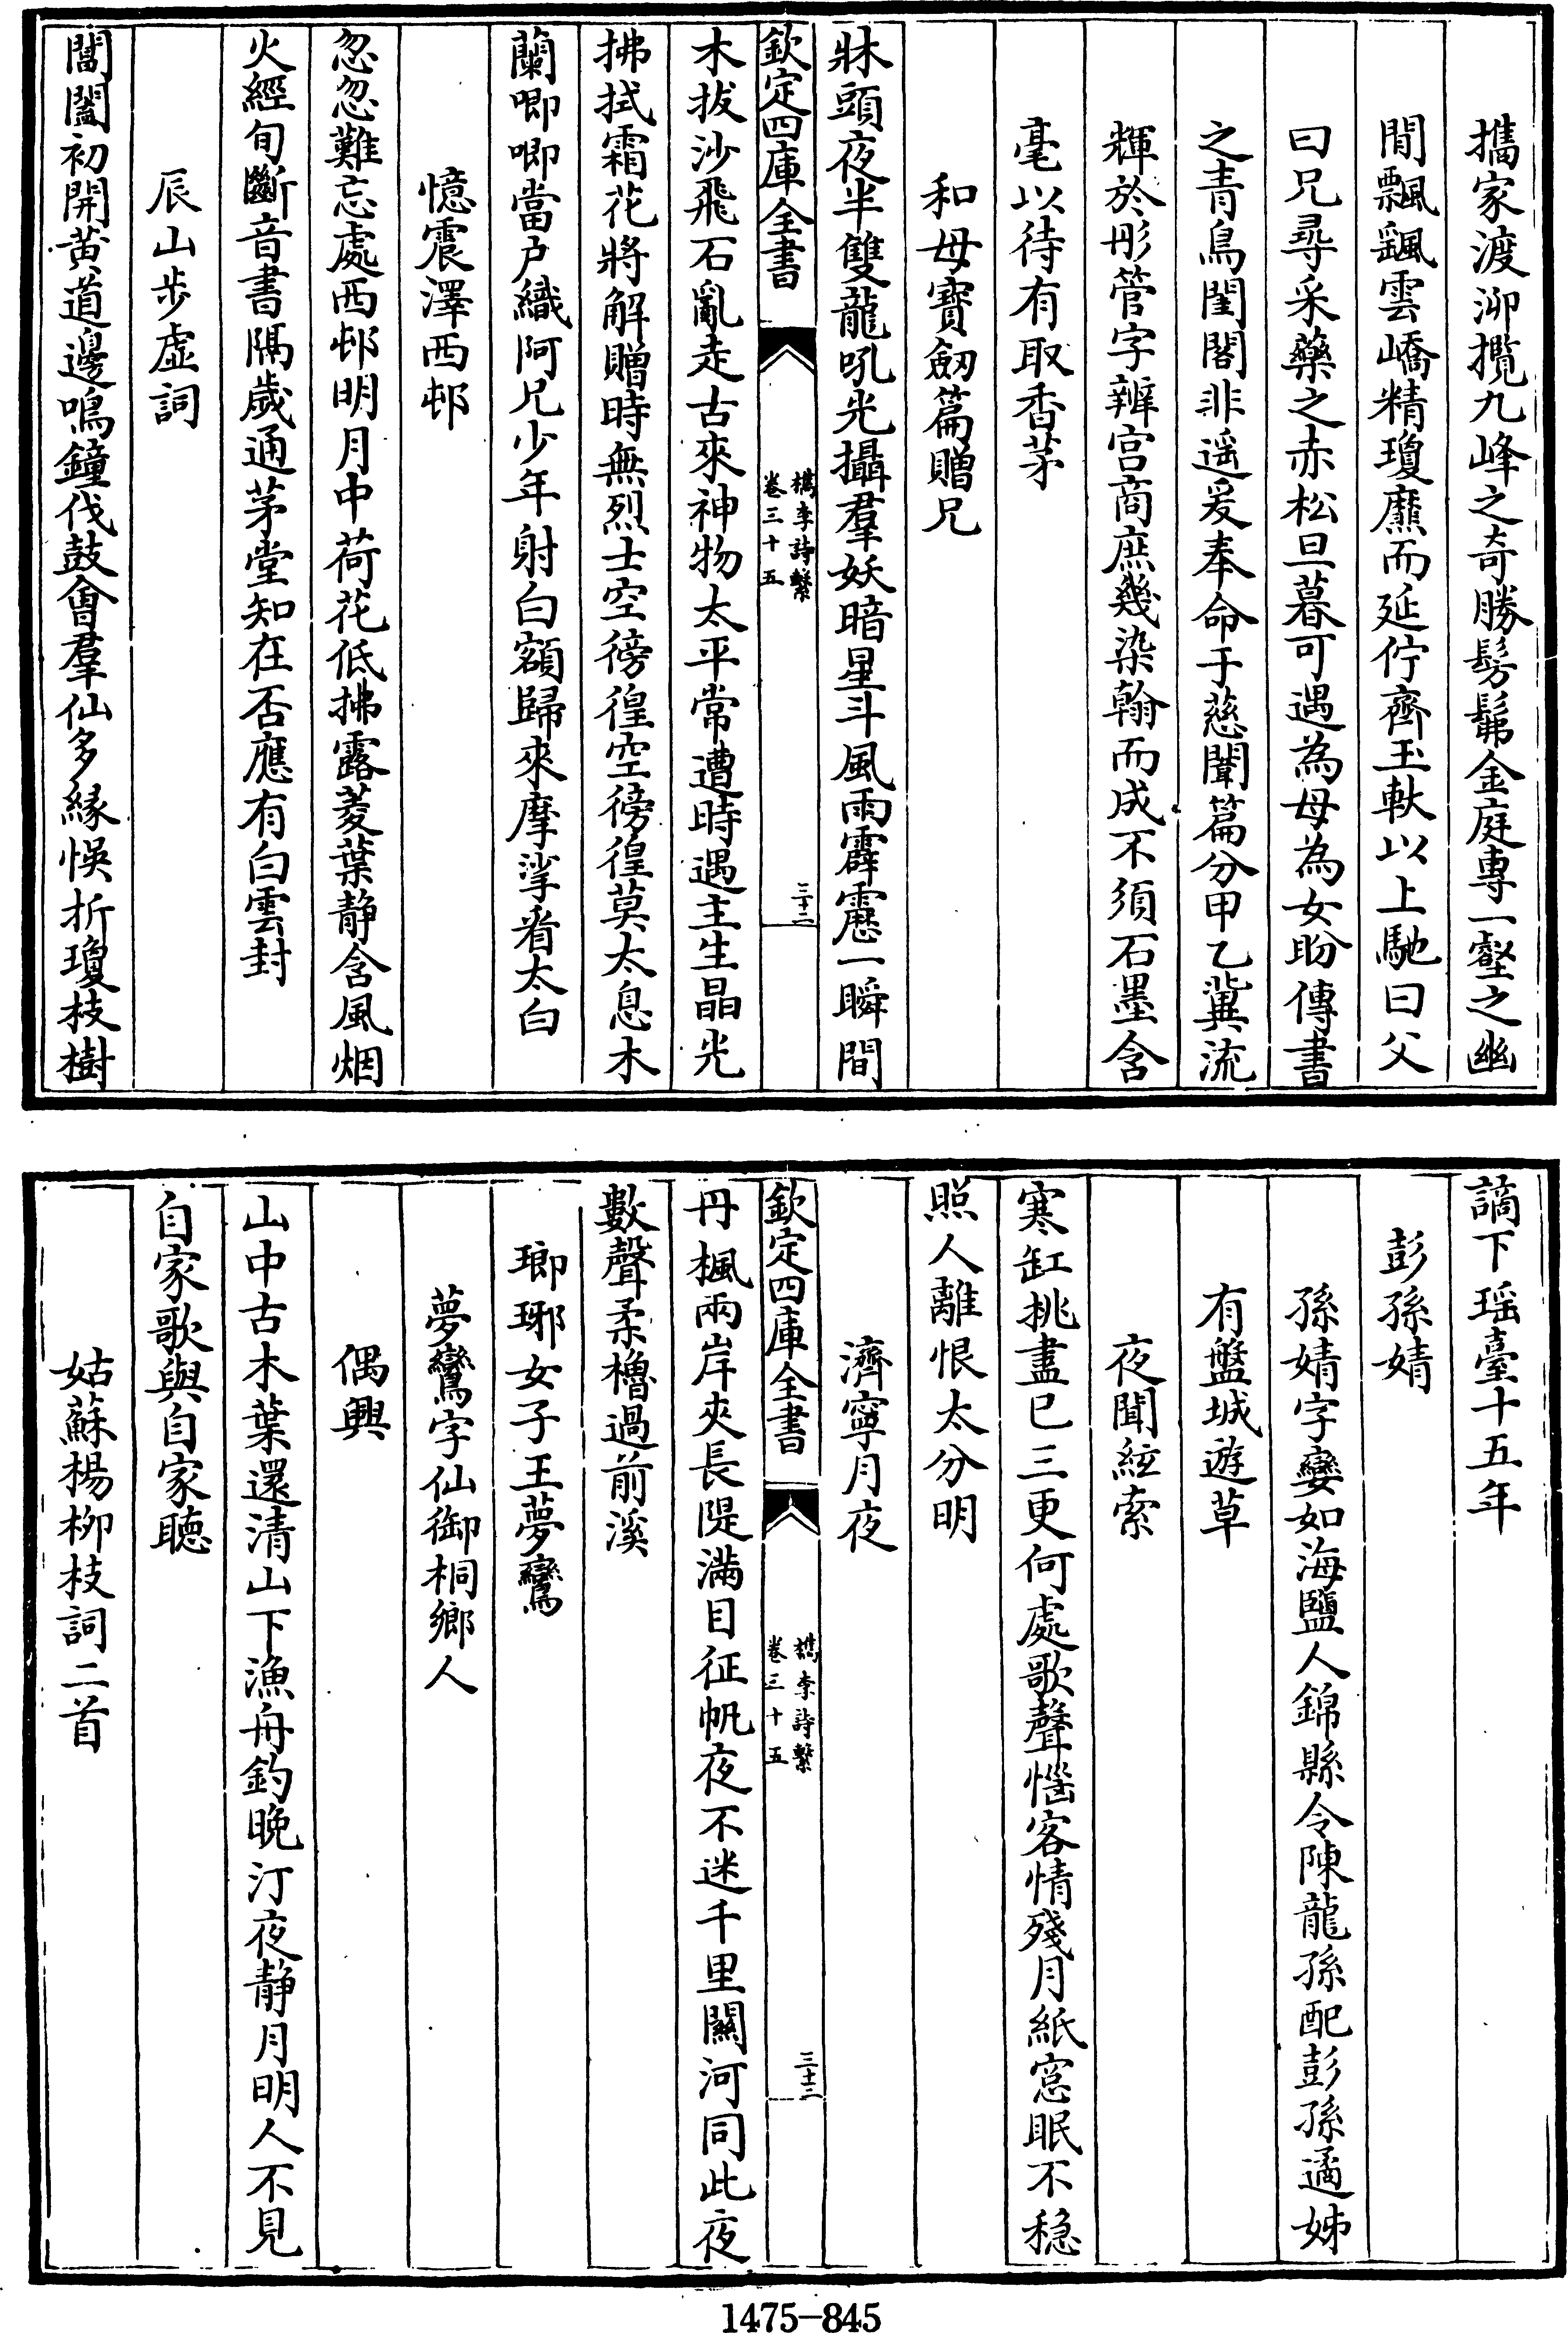 攜家渡泖攬九峰之奇勝髣髴金庭專一壑之幽
閒飄颻雲嶠精瓊爢而延佇齊玉軑以上馳曰父
曰兄尋采藥之赤松旦暮可遇為母為女盼傳書
之青鳥閨閤非遥爰奉命于慈闈篇分甲乙冀流
輝於彤管字辨宫商庶幾染翰而成不須石墨含
毫以待有取香茅
和母寳劒篇贈兄
牀頭夜半雙龍吼光攝羣妖暗星斗風雨霹靂一瞬間
欽定四庫全書
檇李詩繫
卷三十五
三十二
木拔沙飛石亂走古來神物太平常遭時遇主生晶光
拂拭霜花將解贈時無烈士空徬徨空徬徨莫太息木
蘭唧唧當户織阿兄少年射白額歸來摩挲看太白
憶震澤西邨
忽忽難忘處西邨明月中荷花低拂露菱葉静含風烟
火經旬斷音書隔歲通茅堂知在否應有白雲封
辰山步虚詞
閶闔初開黄道邊鳴鐘伐鼓會羣仙多緣悞折瓊枝樹
謫下瑶臺十五年
彭孫婧
孫婧字孌如海鹽人錦縣令陳龍孫配彭孫遹姊
有盤城遊草
夜聞絃索
寒缸挑盡已三更何處歌聲惱客情殘月紙窓眠不穏
照人離恨太分明
濟寧月夜
欽定四庫全書
檇李詩繫
卷三十五
三十三
丹楓兩岸夾長隄滿目征帆夜不迷千里關河同此夜
數聲柔櫓過前溪
瑯琊女子王夢鸞
夢鸞字仙御桐鄉人
偶興
山中古木葉還清山下漁舟釣晚汀夜静月明人不見
自家歌與自家聽
姑蘇楊柳枝詞二首
1475-845